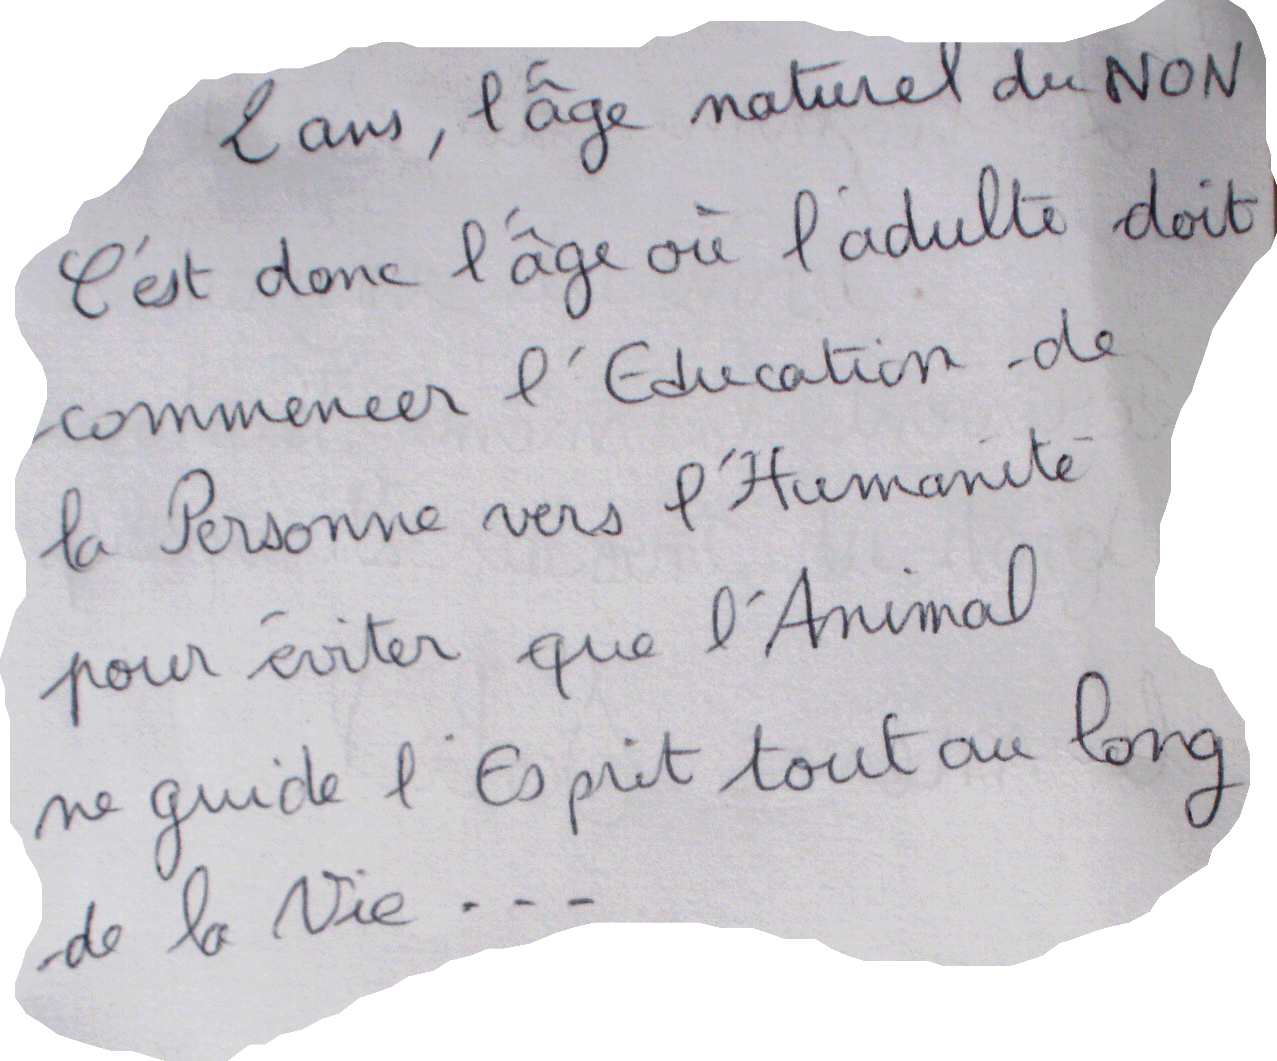 2 ans, l'âge naturel du NON
C'est donc l'âge où l'adulte doit
commencer l'Education de
la Personne vers l'Humanité
pour éviter que l'Animal
ne guide l'Esprit tout au long
de la Vie ...